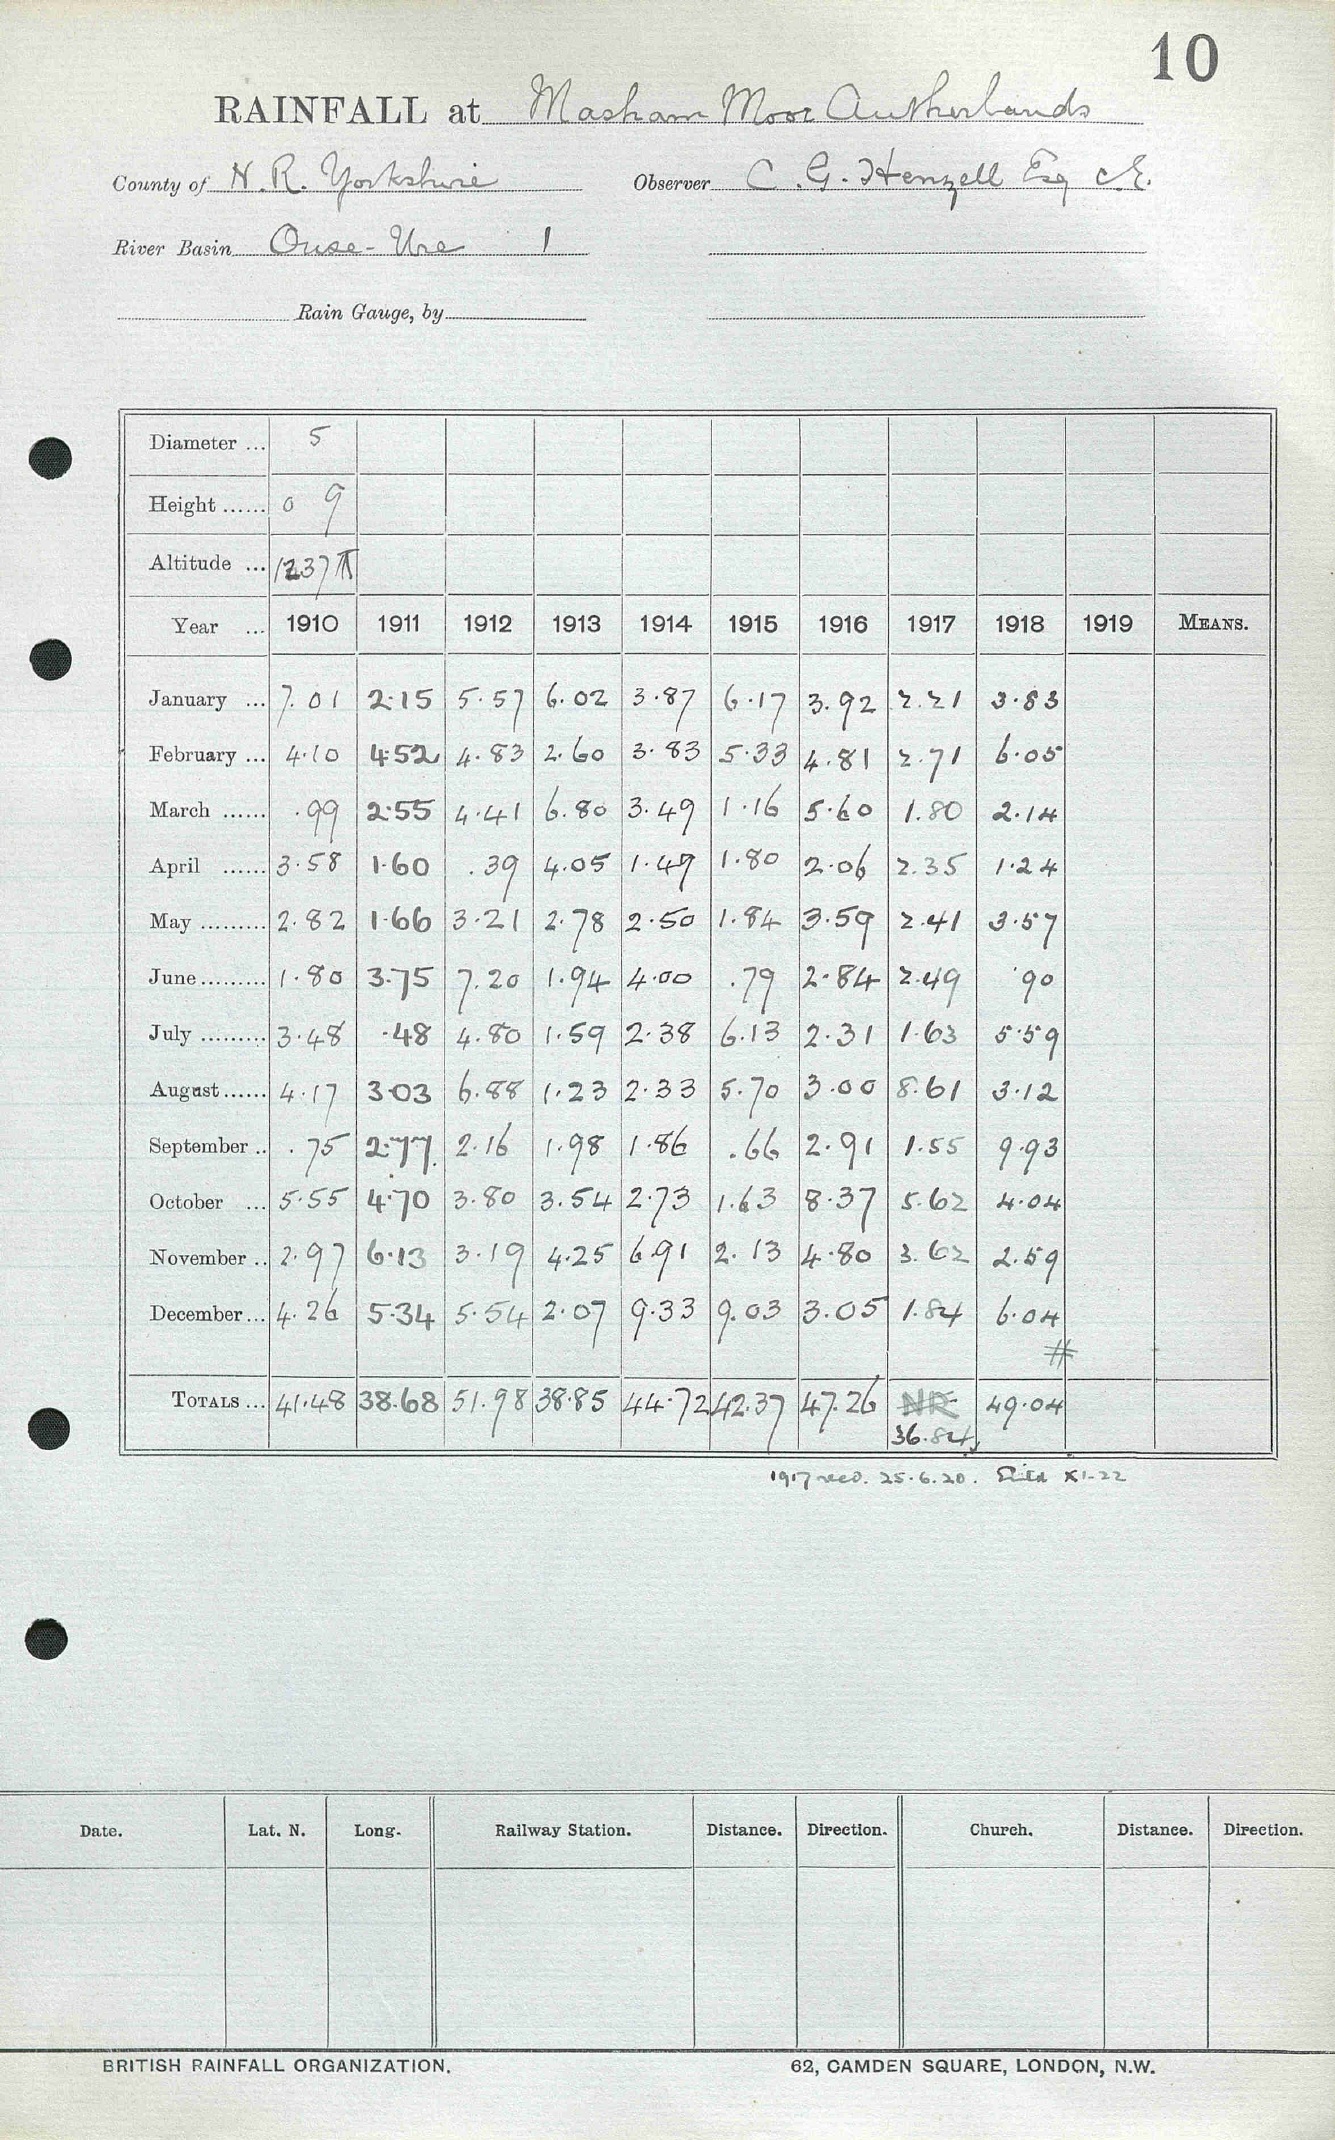 10
RAINFALL at Masham Moor Autherlands
County of N. R. Yorkshire Observer C. G. Henzell Esq C.E.
River Basin Ouse-Ure 1
Rain Gauge, by
Diameter ... 5
Height ...... 0 9
Altitude ... 1237 ft
Year ... 1910 1911 1912 1913 1914 1915 1916 1917 1918 1919 MEANS.
January ... 7.01 2.15 5.57 6.02 3.87 6.17 3.92 2.21 3.83
February ... 4.10 4.52 4.83 2.60 3.83 5.33 4.81 2.71 6.05
March ...... .99 2.55 4.41 6.80 3.49 1.16 5.60 1.80 2.14
April ...... 3.58 1.60 .39 4.05 1.49 1.80 2.06 2.35 1.24
May ......... 2.82 1.66 3.21 2.78 2.50 1.84 3.59 2.41 3.57
June ......... 1.80 3.75 7.20 1.94 4.00 .79 2.84 2.49 .90
July ......... 3.48 .48 4.80 1.59 2.38 6.13 2.31 1.63 5.59
August ...... 4.17 3.03 6.88 1.23 2.33 5.70 3.00 8.61 3.12
September .. .75 2.77 2.16 1.98 1.86 .66 2.91 1.55 9.93
October ... 5.55 4.70 3.80 3.54 2.73 1.63 8.37 5.62 4.04
November .. 2.97 6.13 3.19 4.25 6.91 2.13 4.80 3.62 2.59
December ... 4.26 5.34 5.54 2.07 9.33 9.03 3.05 1.84 6.04
#
TOTALS ... 41.48 38.68 51.98 38.85 44.72 42.37 47.26 NR 49.04
36.84
1917 recd. 25.6.20. XI-22
Date. Lat. N. Long. Railway Station. Distance. Direction. Church. Distance. Direction.
BRITISH RAINFALL ORGANIZATION. 62, CAMDEN SQUARE, LONDON, N.W.